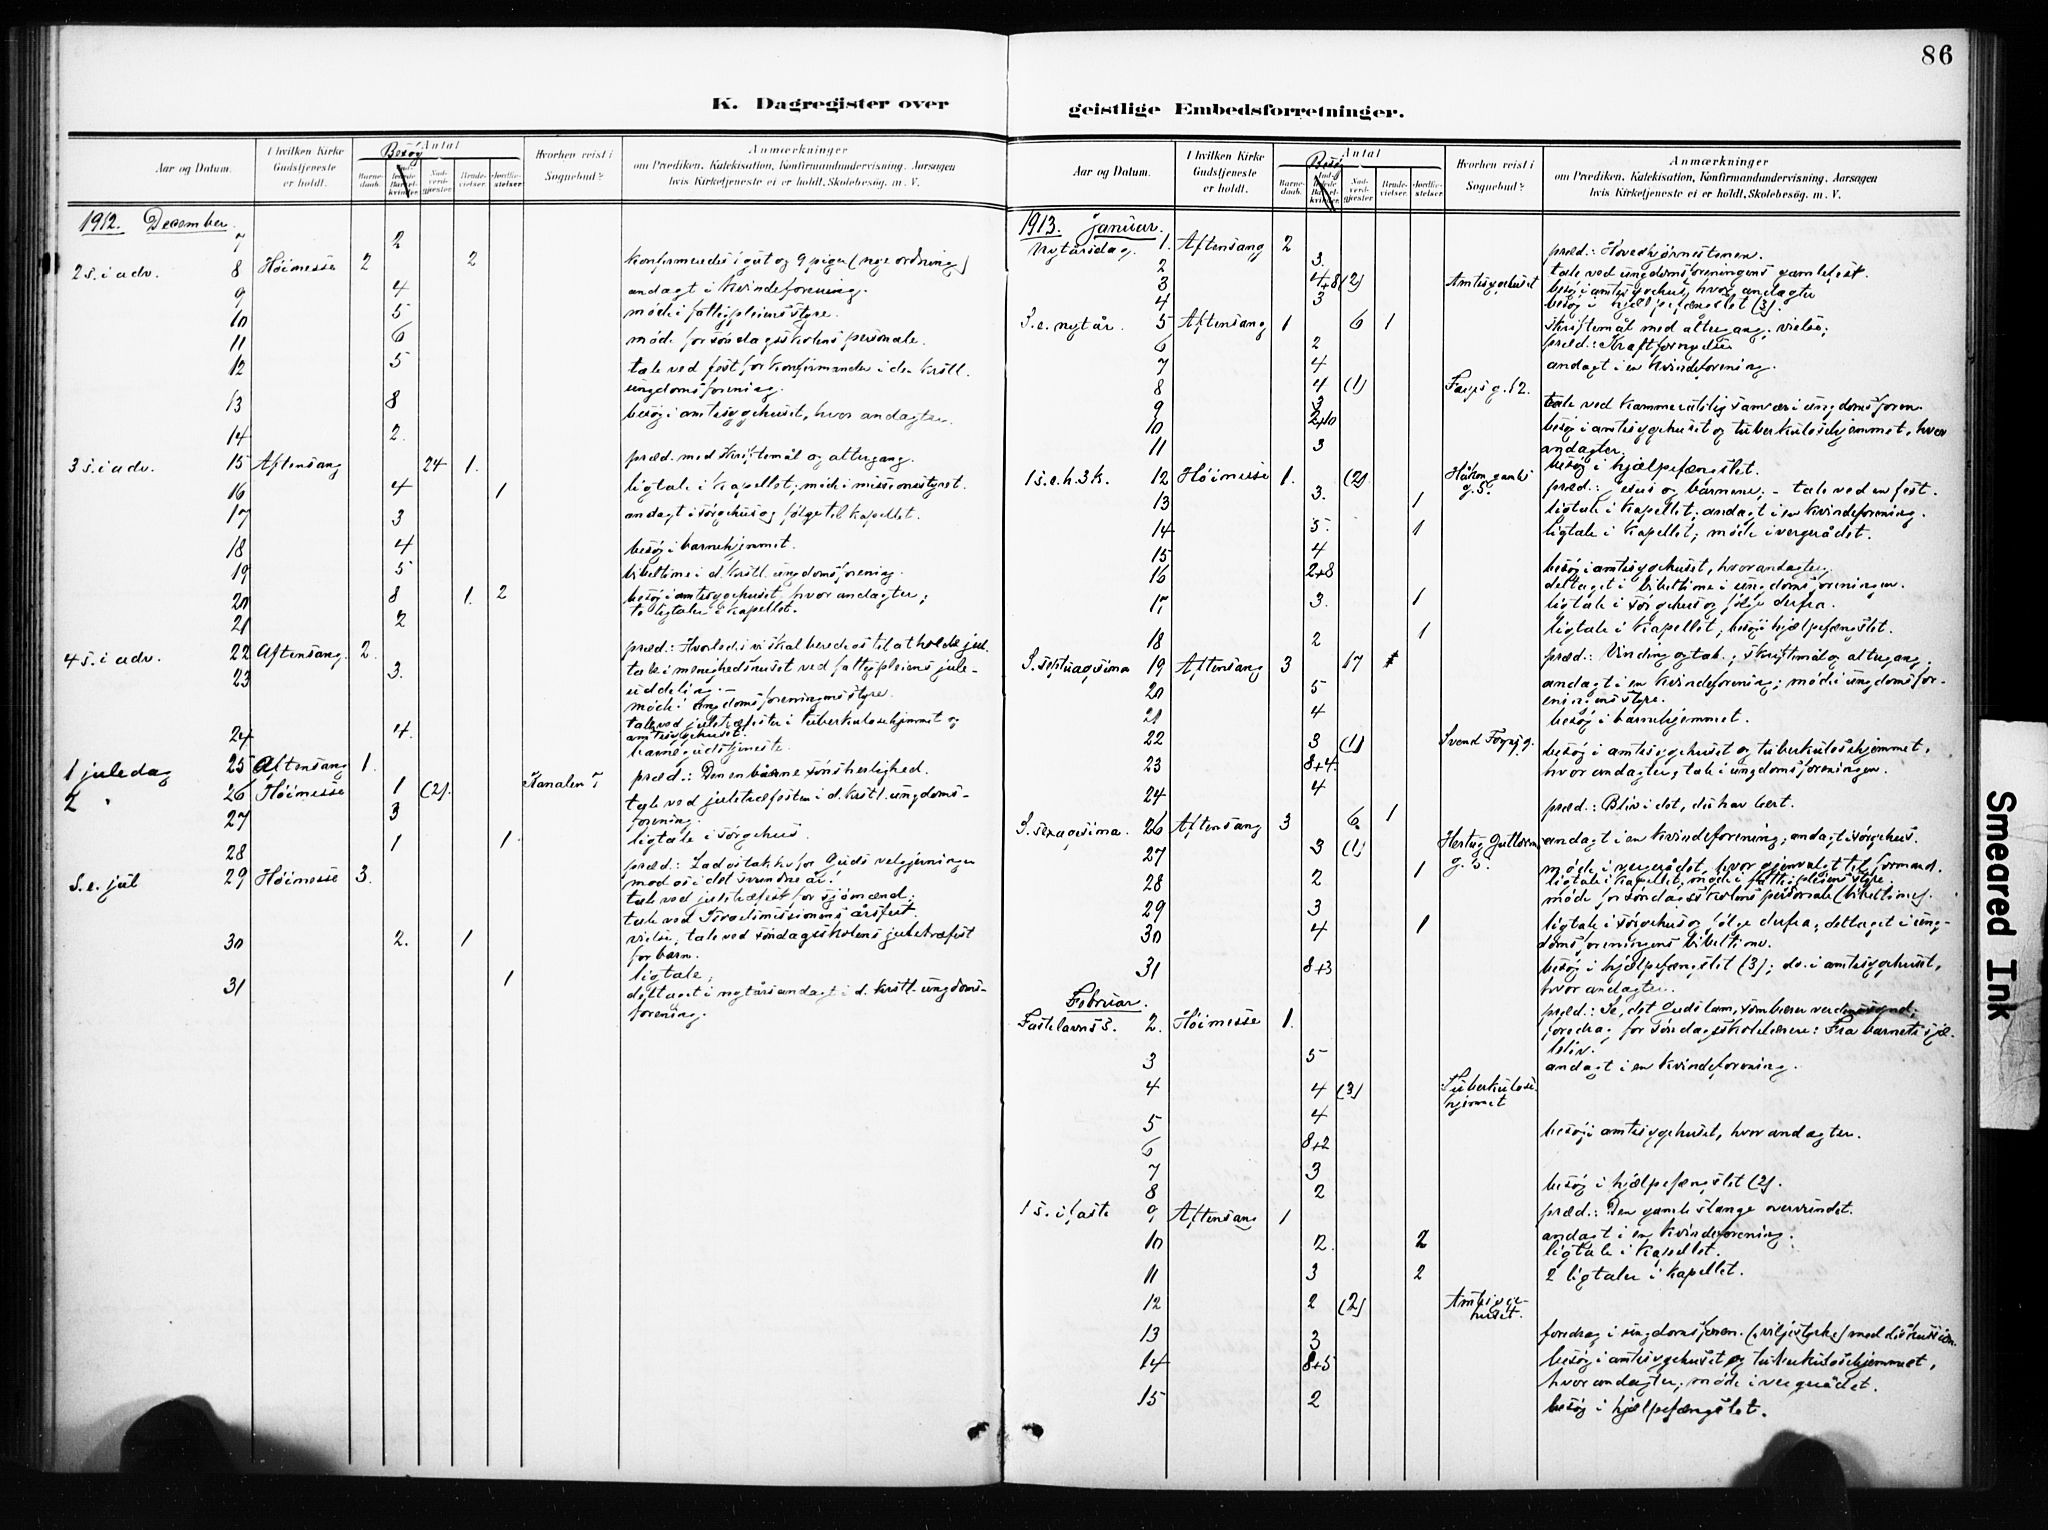 86
K. Dagregister over
geistlige Embedsforretninger.
Aar og Datum.
I hvilken Kirke Gudstjeneste er holdt.
Antal
Besøg
Barnedaab.
Nadverdgjester
Brudevielser.
Jordfæstelser
Hvorhen reist i Sognebud?
Anmærkninger
om Prædiken, Katekisation, Konfirmandundervisning, Aarsagen
hvis Kirketjeneste ei er holdt, Skolebesøg. m. V.
1912. December.
7 2
2 s. i adv. 8 Høimesse 2 2 Konfirmeredes 1 gut og 9 piger (nye ordning)
9 4 andagt i Kvindeforening.
10 5 møde i fattigpleiens styre.
11 6 møde for søndagsskolens personale.
12 5 tale ved fest for Konfirmander i den Kristl.
ungdomsforening.
13 8 besøg i amtssygehuset, hvor andagter.
14 2.
3 s. i adv. 15 Aftensang 24 1. præd. med skriftemål og altergang.
16 4 1 ligtale i Kapellet; møde i missionsstyret.
17 3 andagt i sørgehus og følge til Kapellet.
18 4 besøg i barnehjemmet.
19 5 bibeltime i d. Kristl. ungdomsforening.
20 8 1. 2 besøg i amtssygehuset, hvor andagter;
to ligtaler i Kapellet.
21 2
4 s. i adv. 22 Aftensang. 2. præd.: Hvorledes vi skal beredes til at holde jul.
23 3. tale i menighedshuset ved fattigpleiens jule-
uddeling.—
møde i ungdomsforeningens styre.
24 4. tale ved juletræfester i Tuberkulosehjemmet og
amtssygehuset.
barnegudstjeneste.
1 juledag 25 Aftensang 1. præd.: Den enbårne søns herlighed.
2 " 26 Høimesse 1 (2). Kanalen 7 tale ved juletræfesten i d. Kristl. ungdoms-
27 3 forening.
28 1 1. ligtale i sørgehus.
S. e. jul 29 Høimesse 3. præd.: Lad os takke for Guds velgjerninger
mod os i det svundne år!
tale ved juletræfest for sjømænd;
tale ved Israelsmissionens årsfest.
30 2. 1 vielse, tale ved søndagsskolens juletræfest
for barn.
31 1 ligtale;
deltaget i nytårsandagt i d. Kristl. ungdoms-
forening.
Aar og Datum.
I hvilken Kirke Gudstjeneste er holdt.
Antal
Besøg
Barnedaab.
Nadverdgjester
Brudevielser.
Jordfæstelser
Hvorhen reist i Sognebud?
Anmærkninger
om Prædiken, Katekisation, Konfirmandundervisning, Aarsagen
hvis Kirketjeneste ei er holdt, Skolebesøg. m. V.
1913. Januar.
Nytårsdag. 1. Aftensang 2 præd.: Hovedhjørnestenen.
2 3. tale ved ungdomsforeningens gamlefest.
3 4+8 (2) Amtssygehuset besøg i amtssygehus, hvor andagter
4 3 besøg i hjælpefængslet (3).
S. e. nytår. 5 Aftensang 1 6 1 skriftemål med altergang, vielse;
6 2 præd.: Kraftfornyelse
7 4 andagt i en Kvindeforening.
8 4 (1) g. 12.
9 3 tale ved kammeratslig samvær i ungdomsforen.
10 2+10 besøg i amtssygehuset og tuberkulosehjemmet, hvor
11 3 andagter.
besøg i hjælpefængslet.
1 s. e. h. 3 k. 12 Høimesse 1. (2) Håkon gamles g. 5. præd.: Jesus og børnene; – tale ved en fest.
13 3. 1 ligtale i Kapellet; andagt i en Kvindeforening.
14 5. 1 ligtale i Kapellet; møde i vergerådet.
15 4
16 2+8 besøg i amtssygehuset, hvor andagter
deltaget i bibeltime i ungdomsforeningen.
17 3. 1 ligtale i sørgehus og følge derfra.
18 2 1 ligtale i Kapellet; besøg i hjælpefængslet.
S. septuagesima 19 Aftensang 3 17 præd.: Vinding og tab; skriftemål og altergang.
20 5 andagt i en Kvindeforening; møde i ungdomsfor-
eningens styre.
21 4 besøg i barnehjemmet.
22 3 (1) Svend Foyns g. besøg i amtssygehuset og tuberkulosehjemmet,
23 8+4. hvor andagter; tale i ungdomsforeningen.
24 4
præd.: Bliv i det, du har lært.
S. sexagesima. 26 Aftensang 3 6. 1
27 3 (1) Hertug Guttorms g. 2. andagt i en Kvindeforening, andagt i sørgehus.
28 2 1 møde i vergerådet, hvor gjenvalgt til formand.
ligtale i Kapellet, møde i fattigpleiens styre.
29 3 møde for søndagsskolens personale (bibeltime).
30 4 1 ligtale i sørgehus og følge derfra; deltaget i ung-
domsforeningens bibeltime.
31 8+3 besøg i hjælpefængslet (3); do. i amtssygehuset,
hvor andagter.
Februar.
Fastelavns s. 2. Høimesse 1. præd.: Se, det Guds lam, som bærer verdens synd;
foredrag for søndagsskolelærere: Fra barnets sjæ-
leliv.
3 5 andagt i en Kvindeforening.
4 4 (3) Tuberkulosehjemmet
5 4
6 8+2 besøg i amtssygehuset, hvor andagter.
7 3
8 2 besøg i hjælpefængslet (2).
1 s. i faste 9 Aftensang 1 præd.: Den gamle slange overvundet.
10 2. 2 andagt i en Kvindeforening.
ligtale i Kapellet.
11 3 2 2 ligtaler i Kapellet.
12 2 (2) Amtssygehuset.
13 3 foredrag i ungdomsforen. (viljestyrke) med diskussion.
14 8+5 besøg i amtssygehuset og tuberkulosehjemmet,
hvor andagter; møde i vergerådet.
15 2 besøg i hjælpefængslet.
Smeared Ink